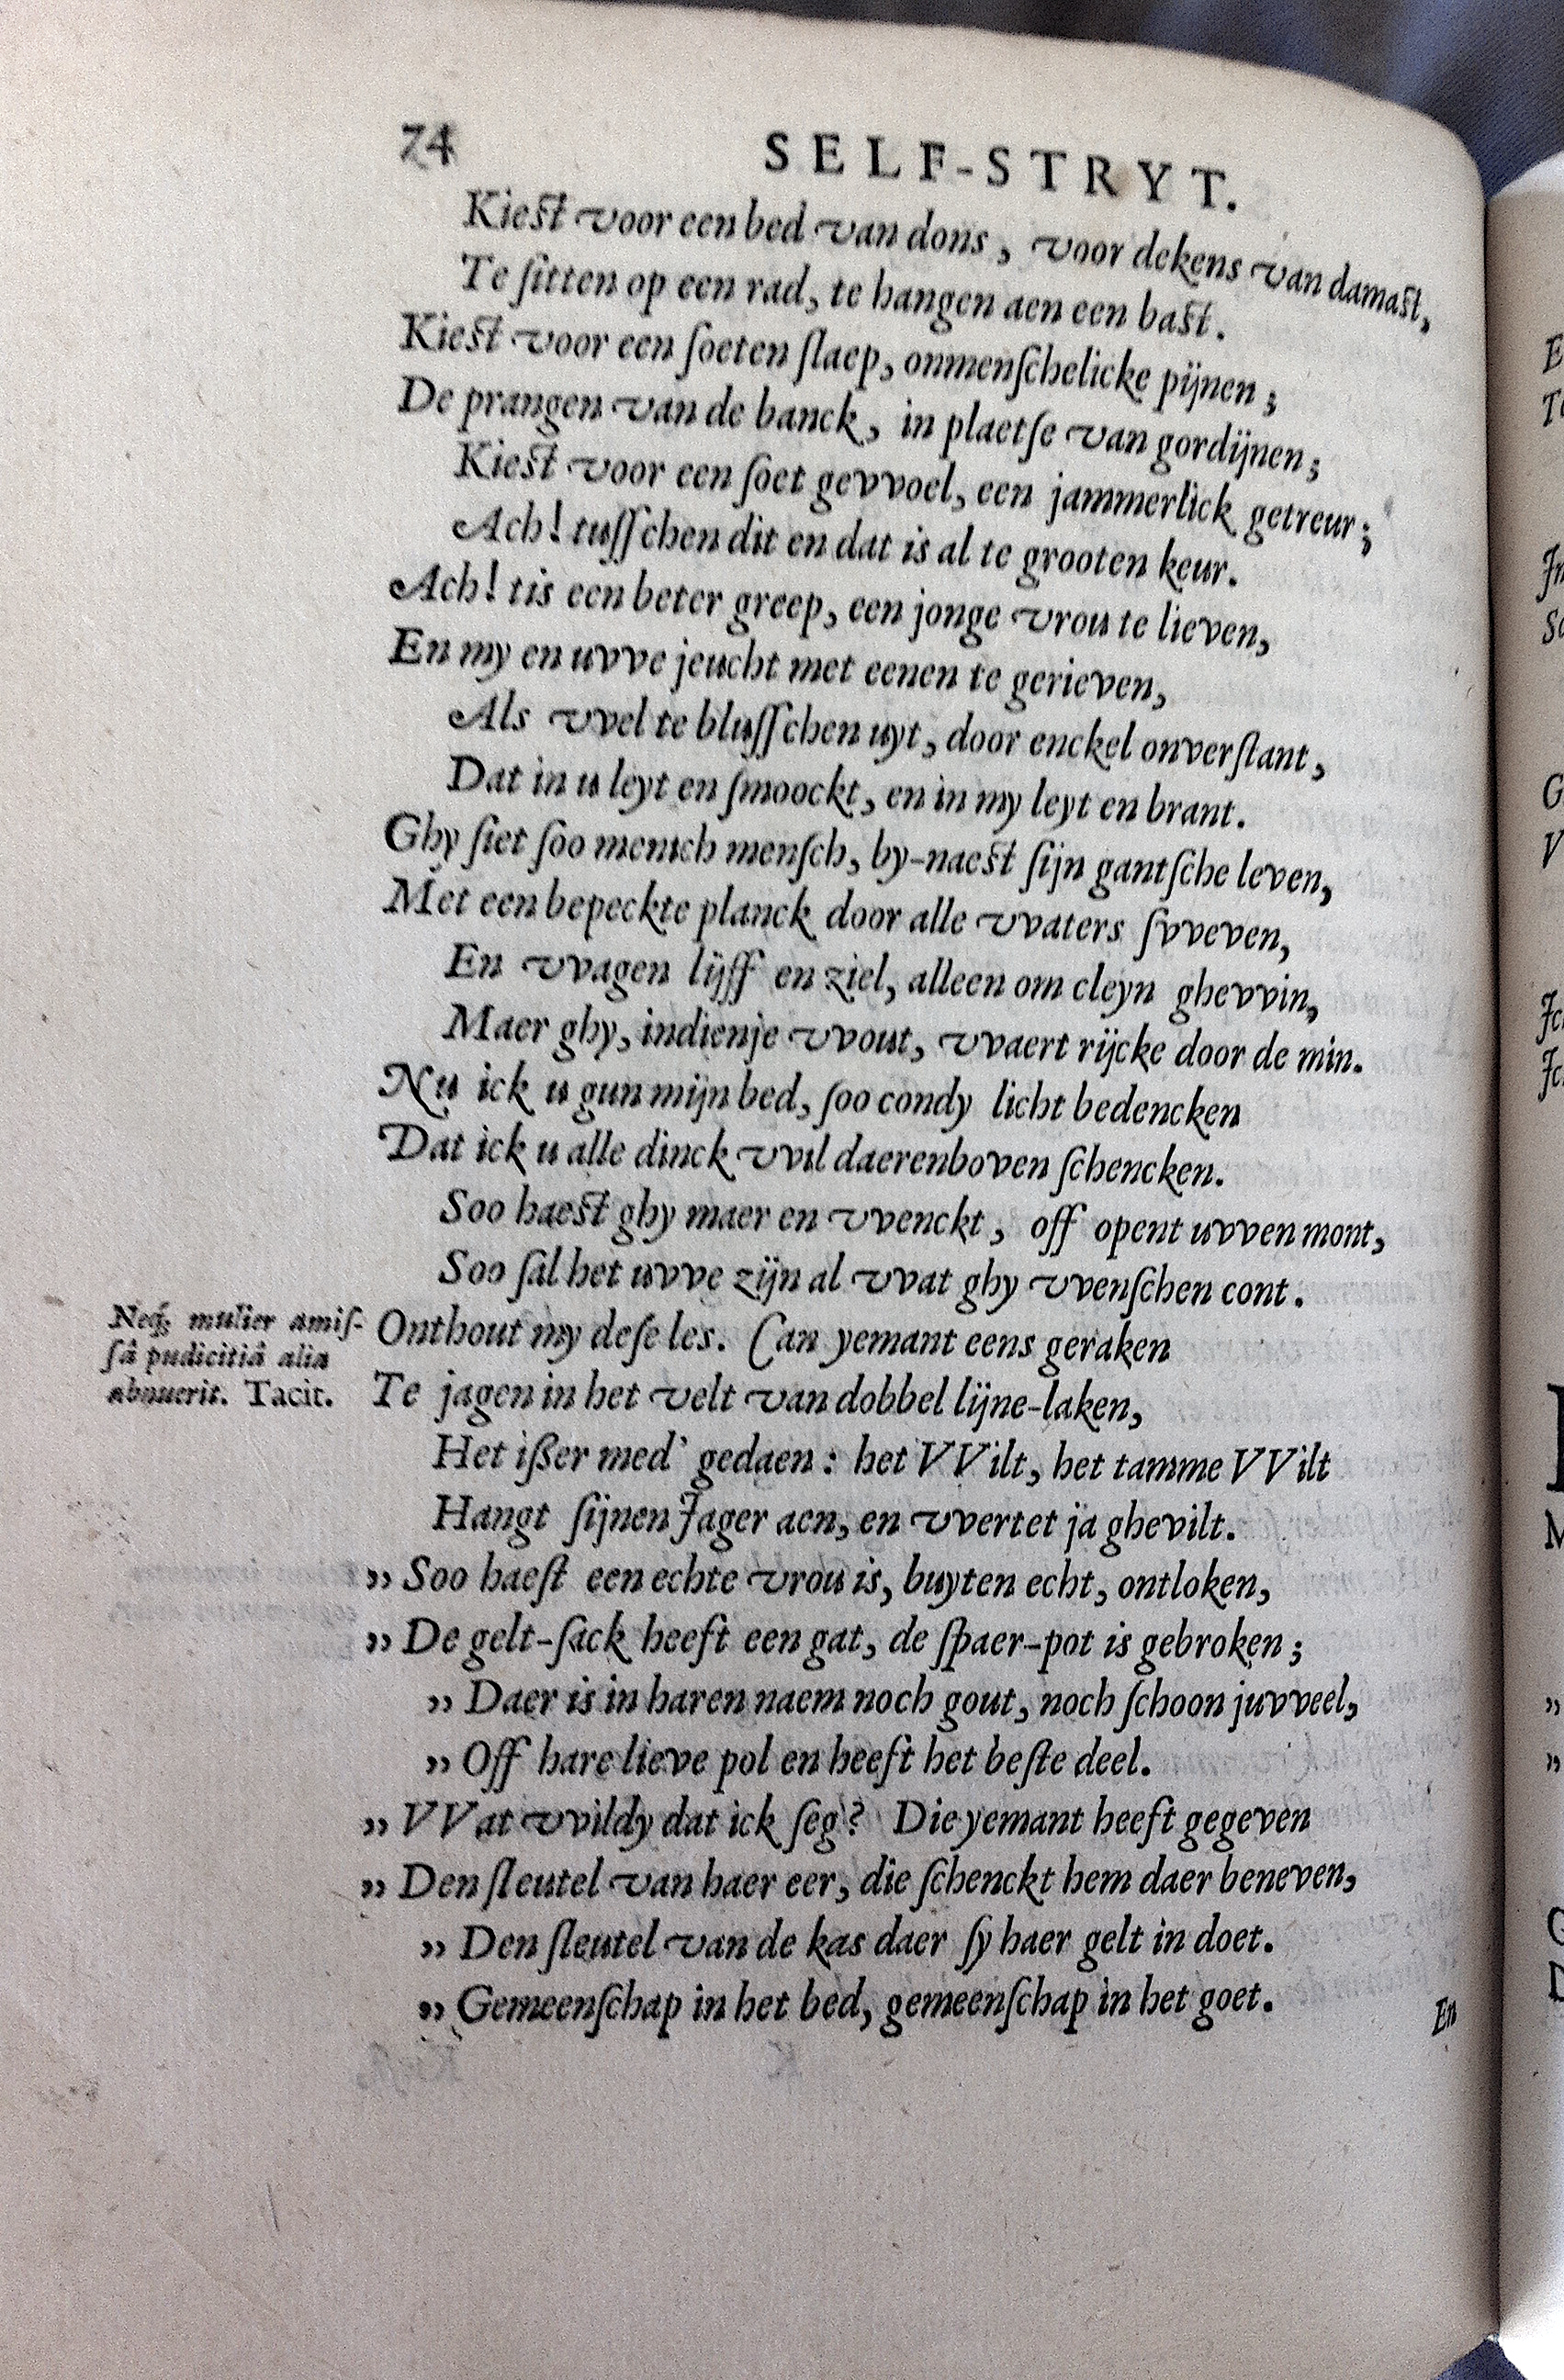 74
SELF-STRYT.
Kiest voor een bed van dons, voor dekens van damast,
Te ſitten op een rad, te hangen aen een bast.
Kiest voor een ſoeten ſlaep, onmenſchelicke pijnen;
De prangen van de banck, in plaetſe van gordijnen;
Kiest voor een ſoet gevvoel, een jammerlick getreur;
Ach! tuſſchen dit en dat is al te grooten keur.
Ach! tis een beter greep, een jonge vrou te lieven,
En my en uvve jeucht met eenen te gerieven,
Als vvel te bluſſchen uyt, door enckel onverſtant,
Dat in u leyt en ſmoockt, en in my leyt en brant.
Ghy ſiet ſoo menich menſch, by-naest ſijn gantſche leven,
Met een bepeckte planck door alle vvaters ſvveven,
En vvagen lijff en ziel, alleen om cleyn ghevvin,
Maer ghy, indienje vvout, vvaert rijcke door de min.
Nu ick u gun mijn bed, ſoo condy licht bedencken
Dat ick u alle dinck vvil daerenboven ſchencken.
Soo haest ghy maer en vvenckt, off opent uvven mont,
Soo ſal het uvve zijn al vvat ghy vvenſchen cont.
Neq; mulier amiſ-
ſâ pudicitiâ alia
abnuerit. Tacit.
Onthout my deſe les. Can yemant eens geraken
Te jagen in het velt van dobbel lijne-laken,
Het iſſer med' gedaen: het VVilt, het tamme VVilt
Hangt ſijnen Jager aen, en vvertet ja ghevilt.
„ Soo haeſt een echte vrou is, buyten echt, ontloken,
„ De gelt-ſack heeft een gat, de ſpaer-pot is gebroken;
„ Daer is in haren naem noch gout, noch ſchoon juvveel,
„ Off hare lieve pol en heeft het beſte deel.
„ VVat vvildy dat ick ſeg? Die yemant heeft gegeven
„ Den ſleutel van haer eer, die ſchenckt hem daer beneven,
„ Den ſleutel van de kas daer ſy haer gelt in doet.
„ Gemeenſchap in het bed, gemeenſchap in het goet.
En